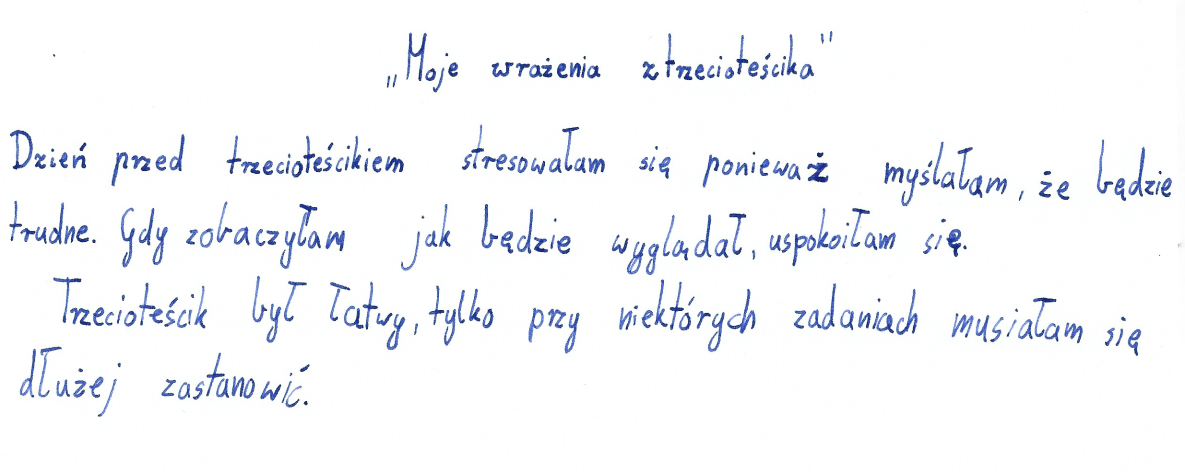 „Moje wrażenia z trzecioteścika"
Dzień przed trzecioteścikiem stresowałam się ponieważ myślałam, że będzie
trudne. Gdy zobaczyłam jak będzie wyglądał, uspokoiłam się.
Trzecioteścik był łatwy, tylko przy niektórych zadaniach musiałam się
dłużej zastanowić.